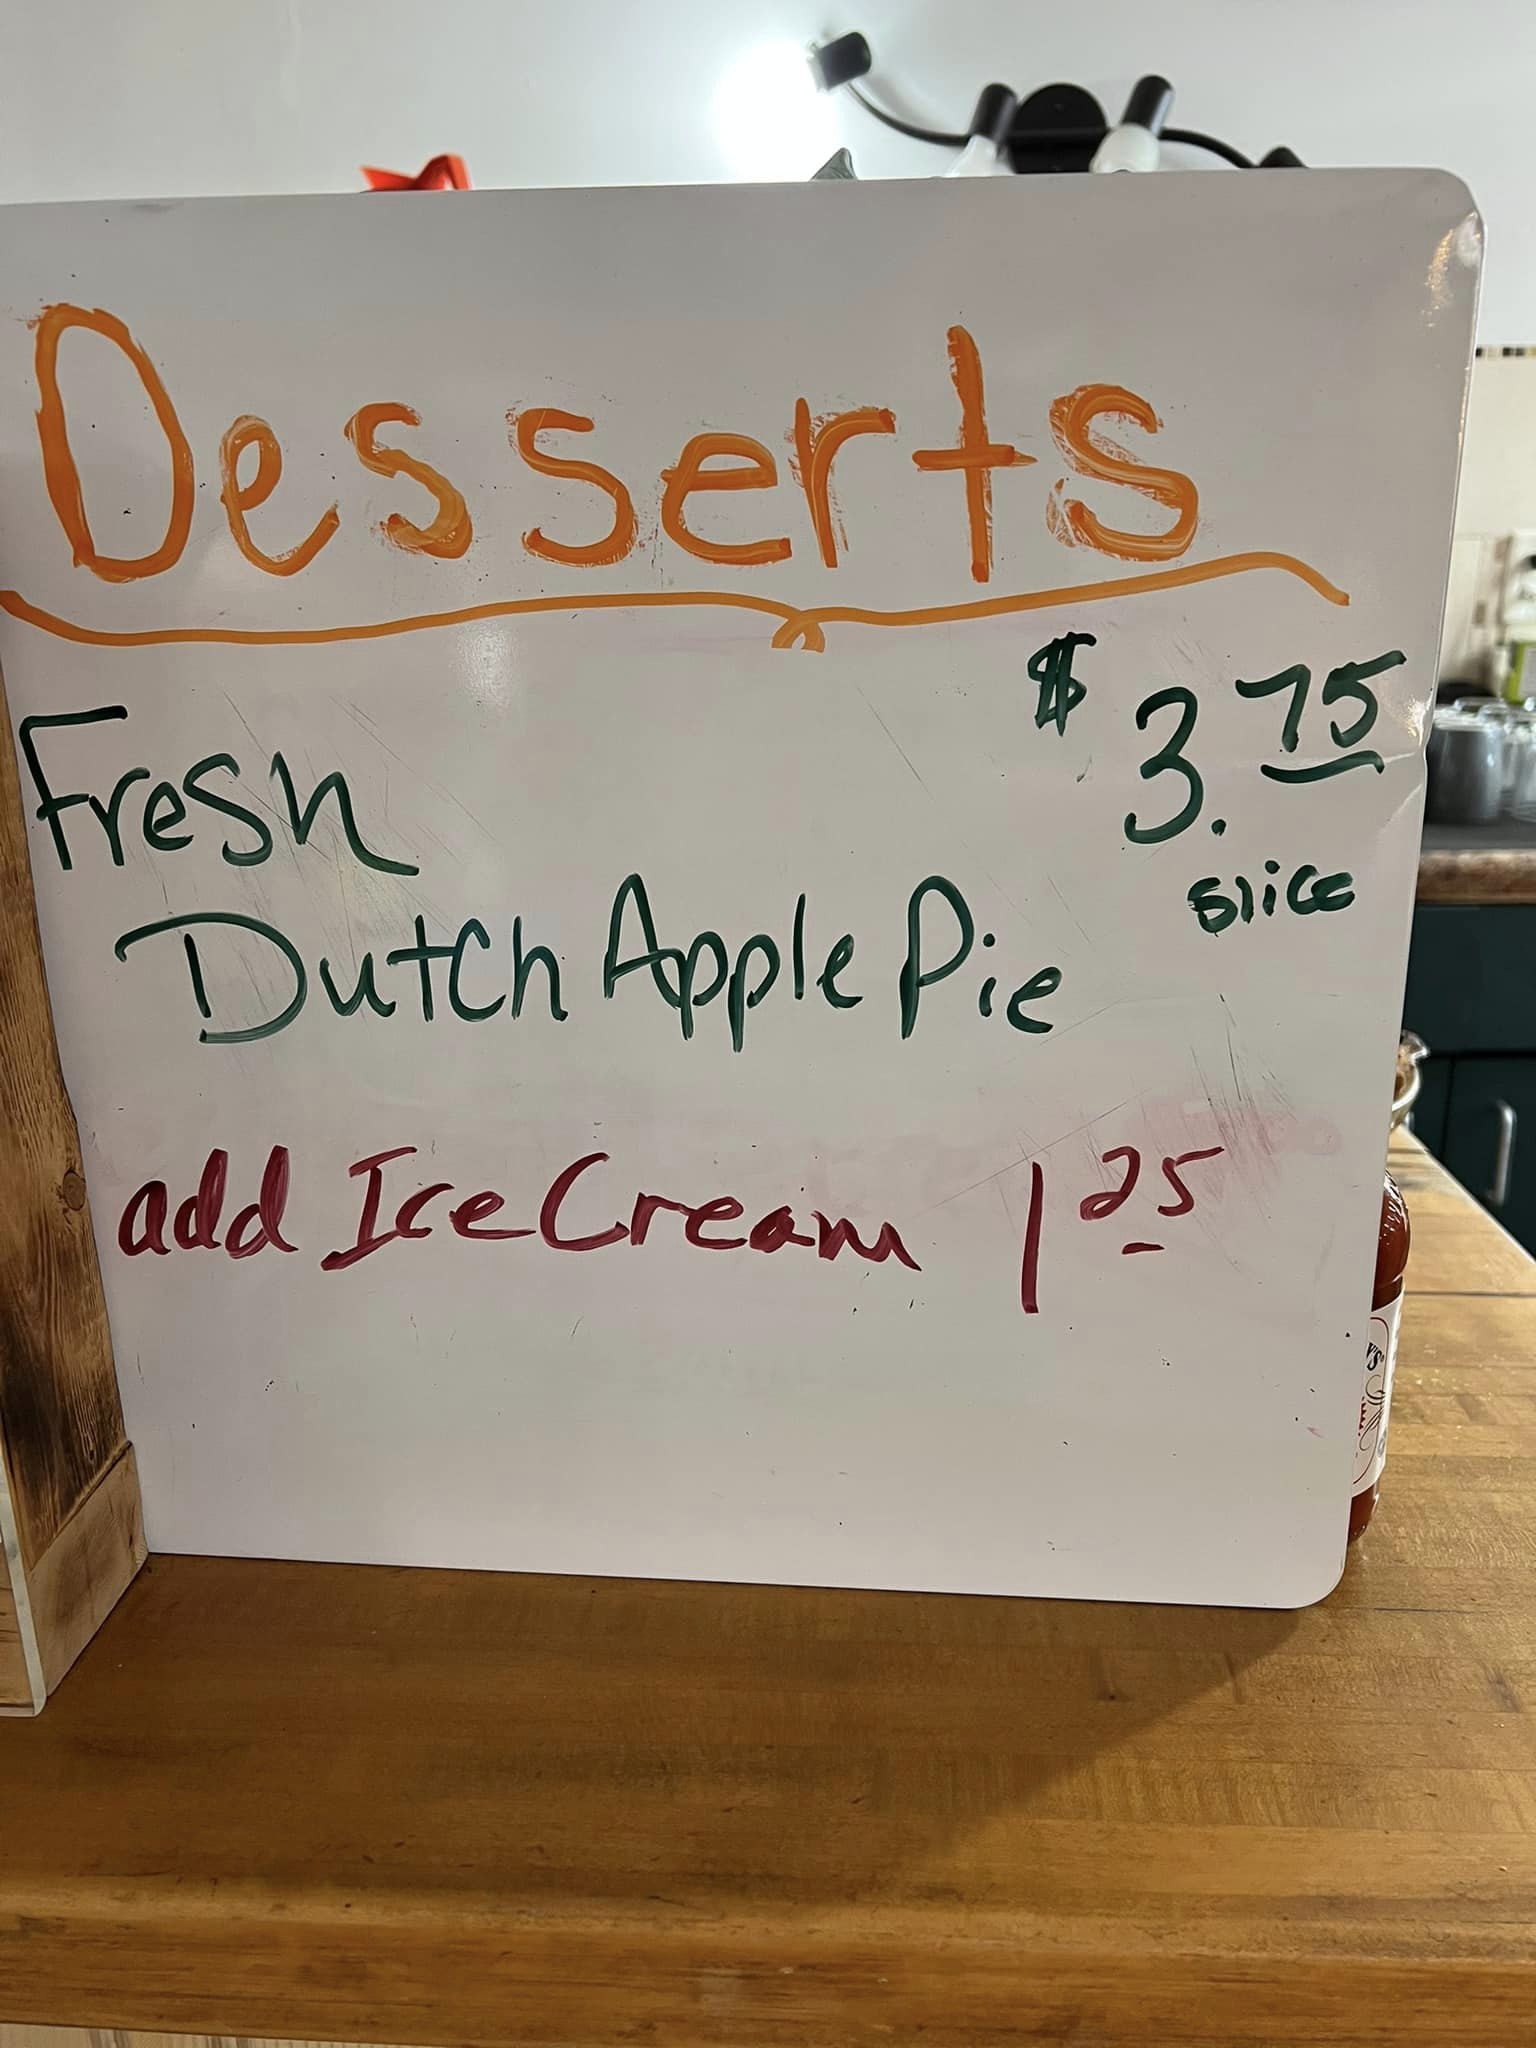 Desserts
Fresh $3.75
slice
Dutch Apple Pie
add Ice Cream 1 25